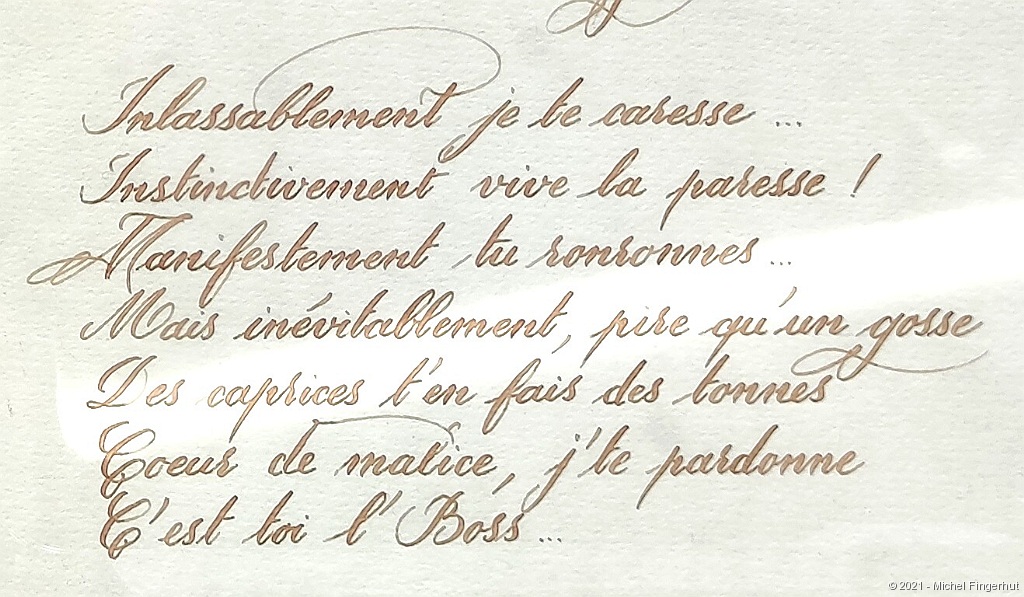 Inlassablement je te caresse ...
Instinctivement vive la paresse !
Manifestement tu ronronnes ...
Mais inévitablement, pire qu'un gosse
Des caprices t'en fais des tonnes
Coeur de malice, j'te pardonne
C'est toi l'Boss ...
© 2021 - Michel Fingerhut